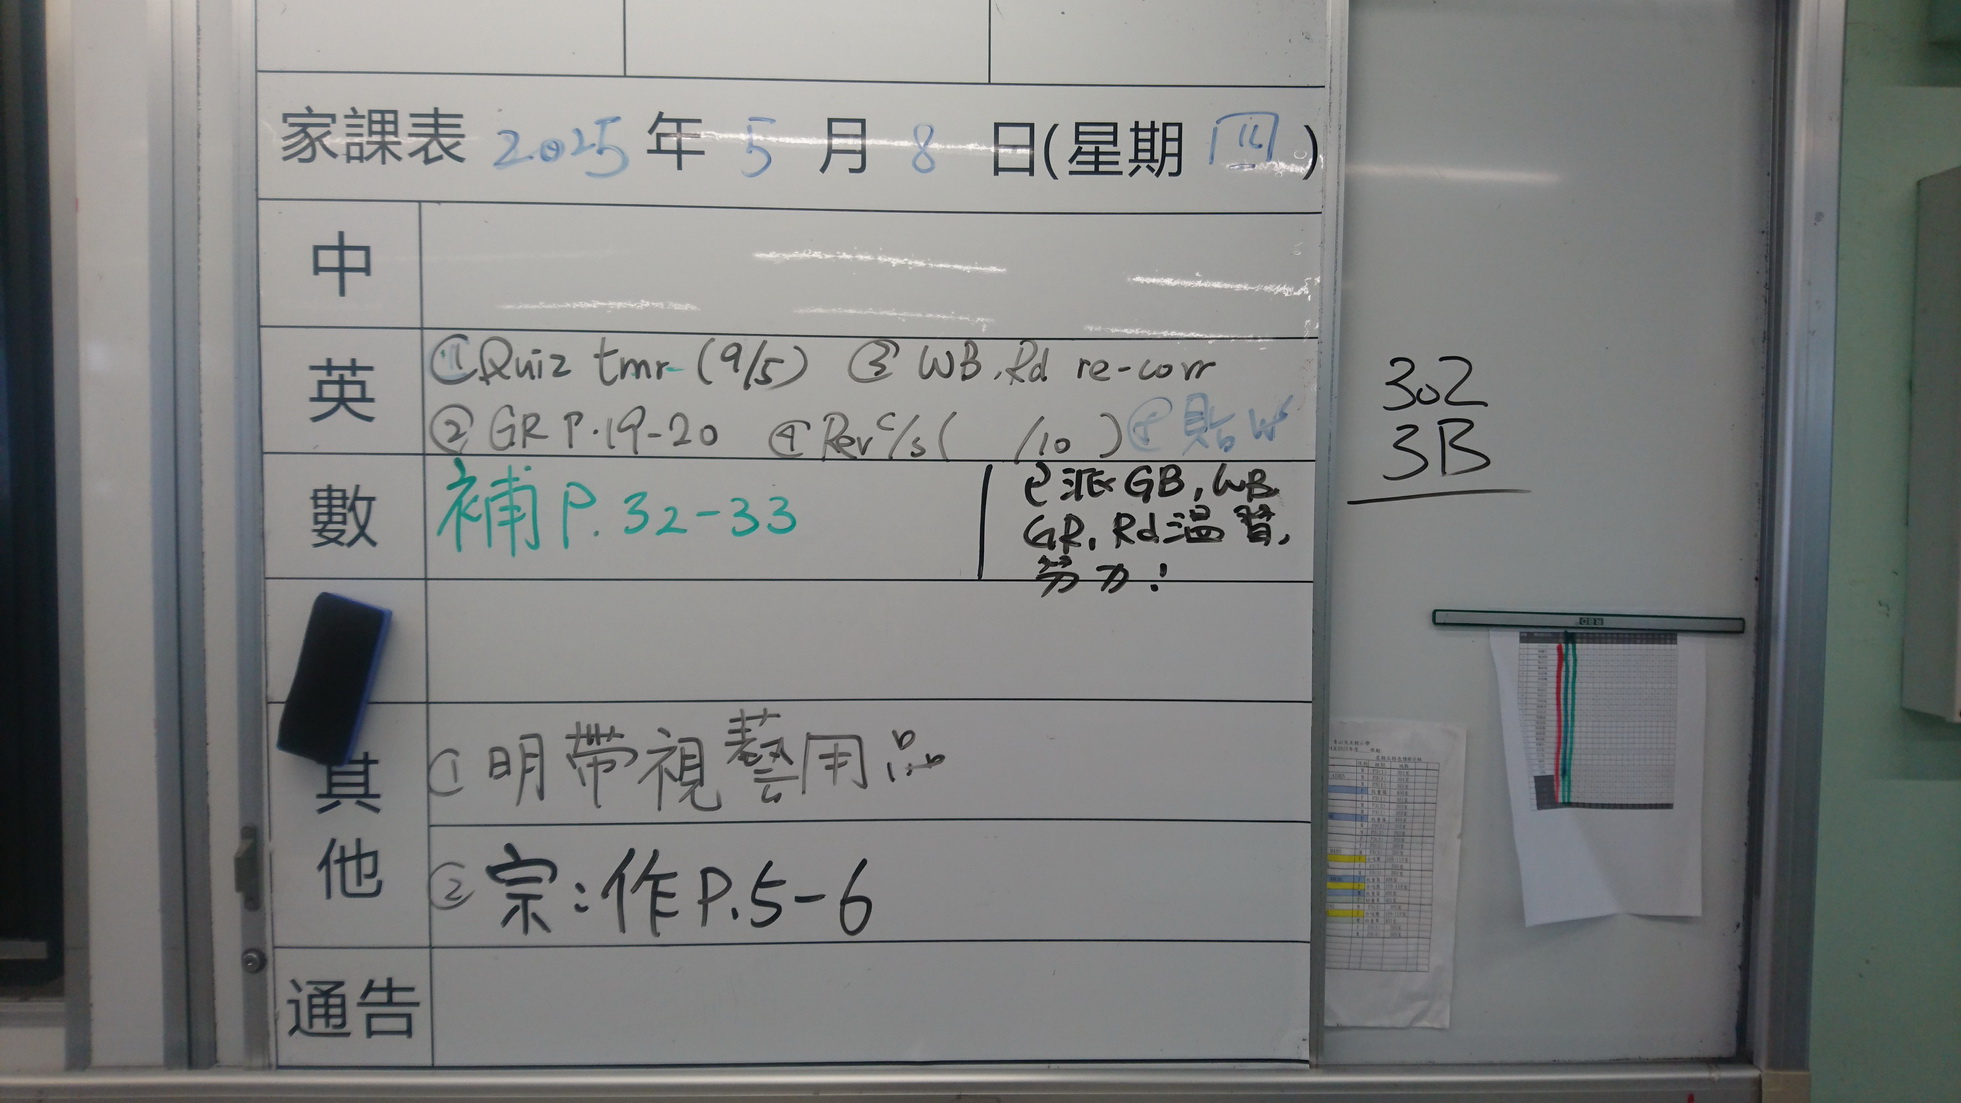 家課表 2025 年 5 月 8 日(星期 四 )
中
英
①Quiz tmr (9/5) ③ WB, Rd re-corr
② GR P.19-20 ④ Rev c/s ( /10 ) ⑤ 貼 W
數
補 P. 32-33
已派 GB, WB
GR, Rd 溫習,
努力!
其他
① 明帶視藝用品
② 宗:作 P.5-6
通告
302
3B